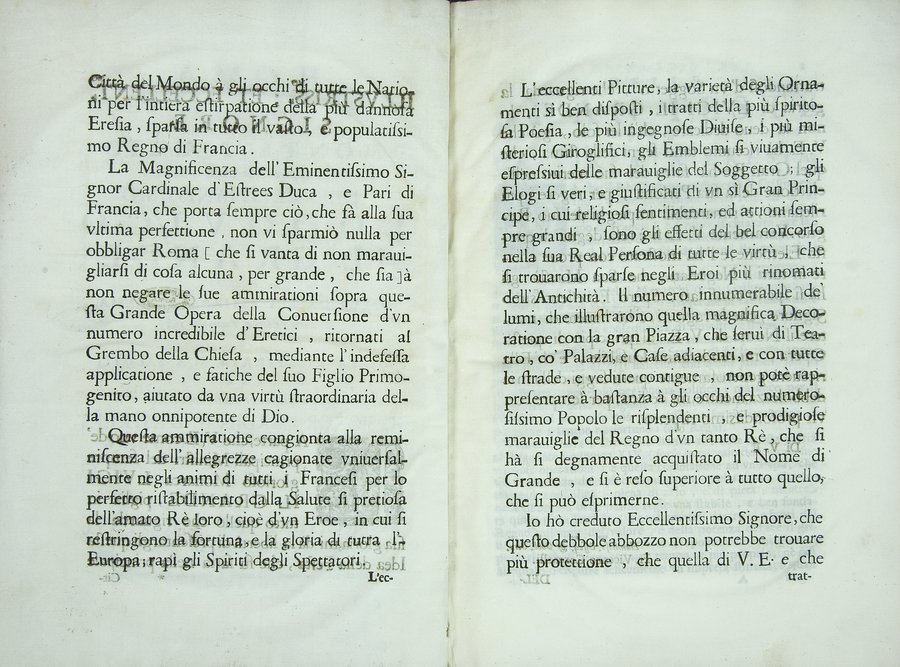 Città del Mondo à gli occhi di tutte le Nazio-
ni per l'intiera estirpatione della più dannosa
Eresia, sparsa in tutto il vasto, e populatissi-
mo Regno di Francia.
La Magnificenza dell'Eminentissimo Si-
gnor Cardinale d'Estrees Duca, e Pari di
Francia, che porta sempre ciò, che fà alla sua
vltima perfettione, non vi sparmiò nulla per
obbligar Roma [ che si vanta di non maraui-
gliarsi di cosa alcuna, per grande, che sia ] à
non negare le sue ammirationi sopra que-
sta Grande Opera della Conuersione d'vn
numero incredibile d'Eretici, ritornati al
Grembo della Chiesa, mediante l'indefessa
applicatione, e fatiche del suo Figlio Primo-
genito, aiutato da vna virtù straordinaria del-
la mano onnipotente di Dio.
Questa ammiratione congionta alla remi-
niscenza dell'allegrezze cagionate vniuersal-
mente negli animi di tutti i Francesi per lo
perfetto ristabilimento dalla Salute sì pretiosa
dell'amato Rè loro, cioè d'vn Eroe, in cui si
restringono la fortuna, e la gloria di tutta l'-
Europa; rapì gli Spiriti degli Spettatori.
L'ec-
L'eccellenti Pitture, la varietà degli Orna-
menti sì ben disposti, i tratti della più spirito-
sa Poesia, le più ingegnose Diuise, i più mi-
steriosi Giroglifici, gli Emblemi sì viuamente
espressiui delle marauiglie del Soggetto; gli
Elogi sì veri, e giustificati di vn sì Gran Prin-
cipe, i cui religiosi sentimenti, ed attioni sem-
pre grandi, sono gli effetti del bel concorso
nella sua Real Persona di tutte le virtù, che
si trouarono sparse negli Eroi più rinomati
dell'Antichità. Il numero innumerabile de'
lumi, che illustrarono quella magnifica Deco-
ratione con la gran Piazza, che seruì di Tea-
tro, co' Palazzi, e Case adiacenti, e con tutte
le strade, e vedute contigue, non potè rap-
presentare à bastanza à gli occhi del numero-
sissimo Popolo le risplendenti, e prodigiose
marauiglie del Regno d'vn tanto Rè, che si
hà sì degnamente acquistato il Nome di
Grande, e si è reso superiore à tutto quello,
che si può esprimerne.
Io hò creduto Eccellentissimo Signore, che
questo debbole abbozzo non potrebbe trouare
più protettione, che quella di V. E. e che
trat-